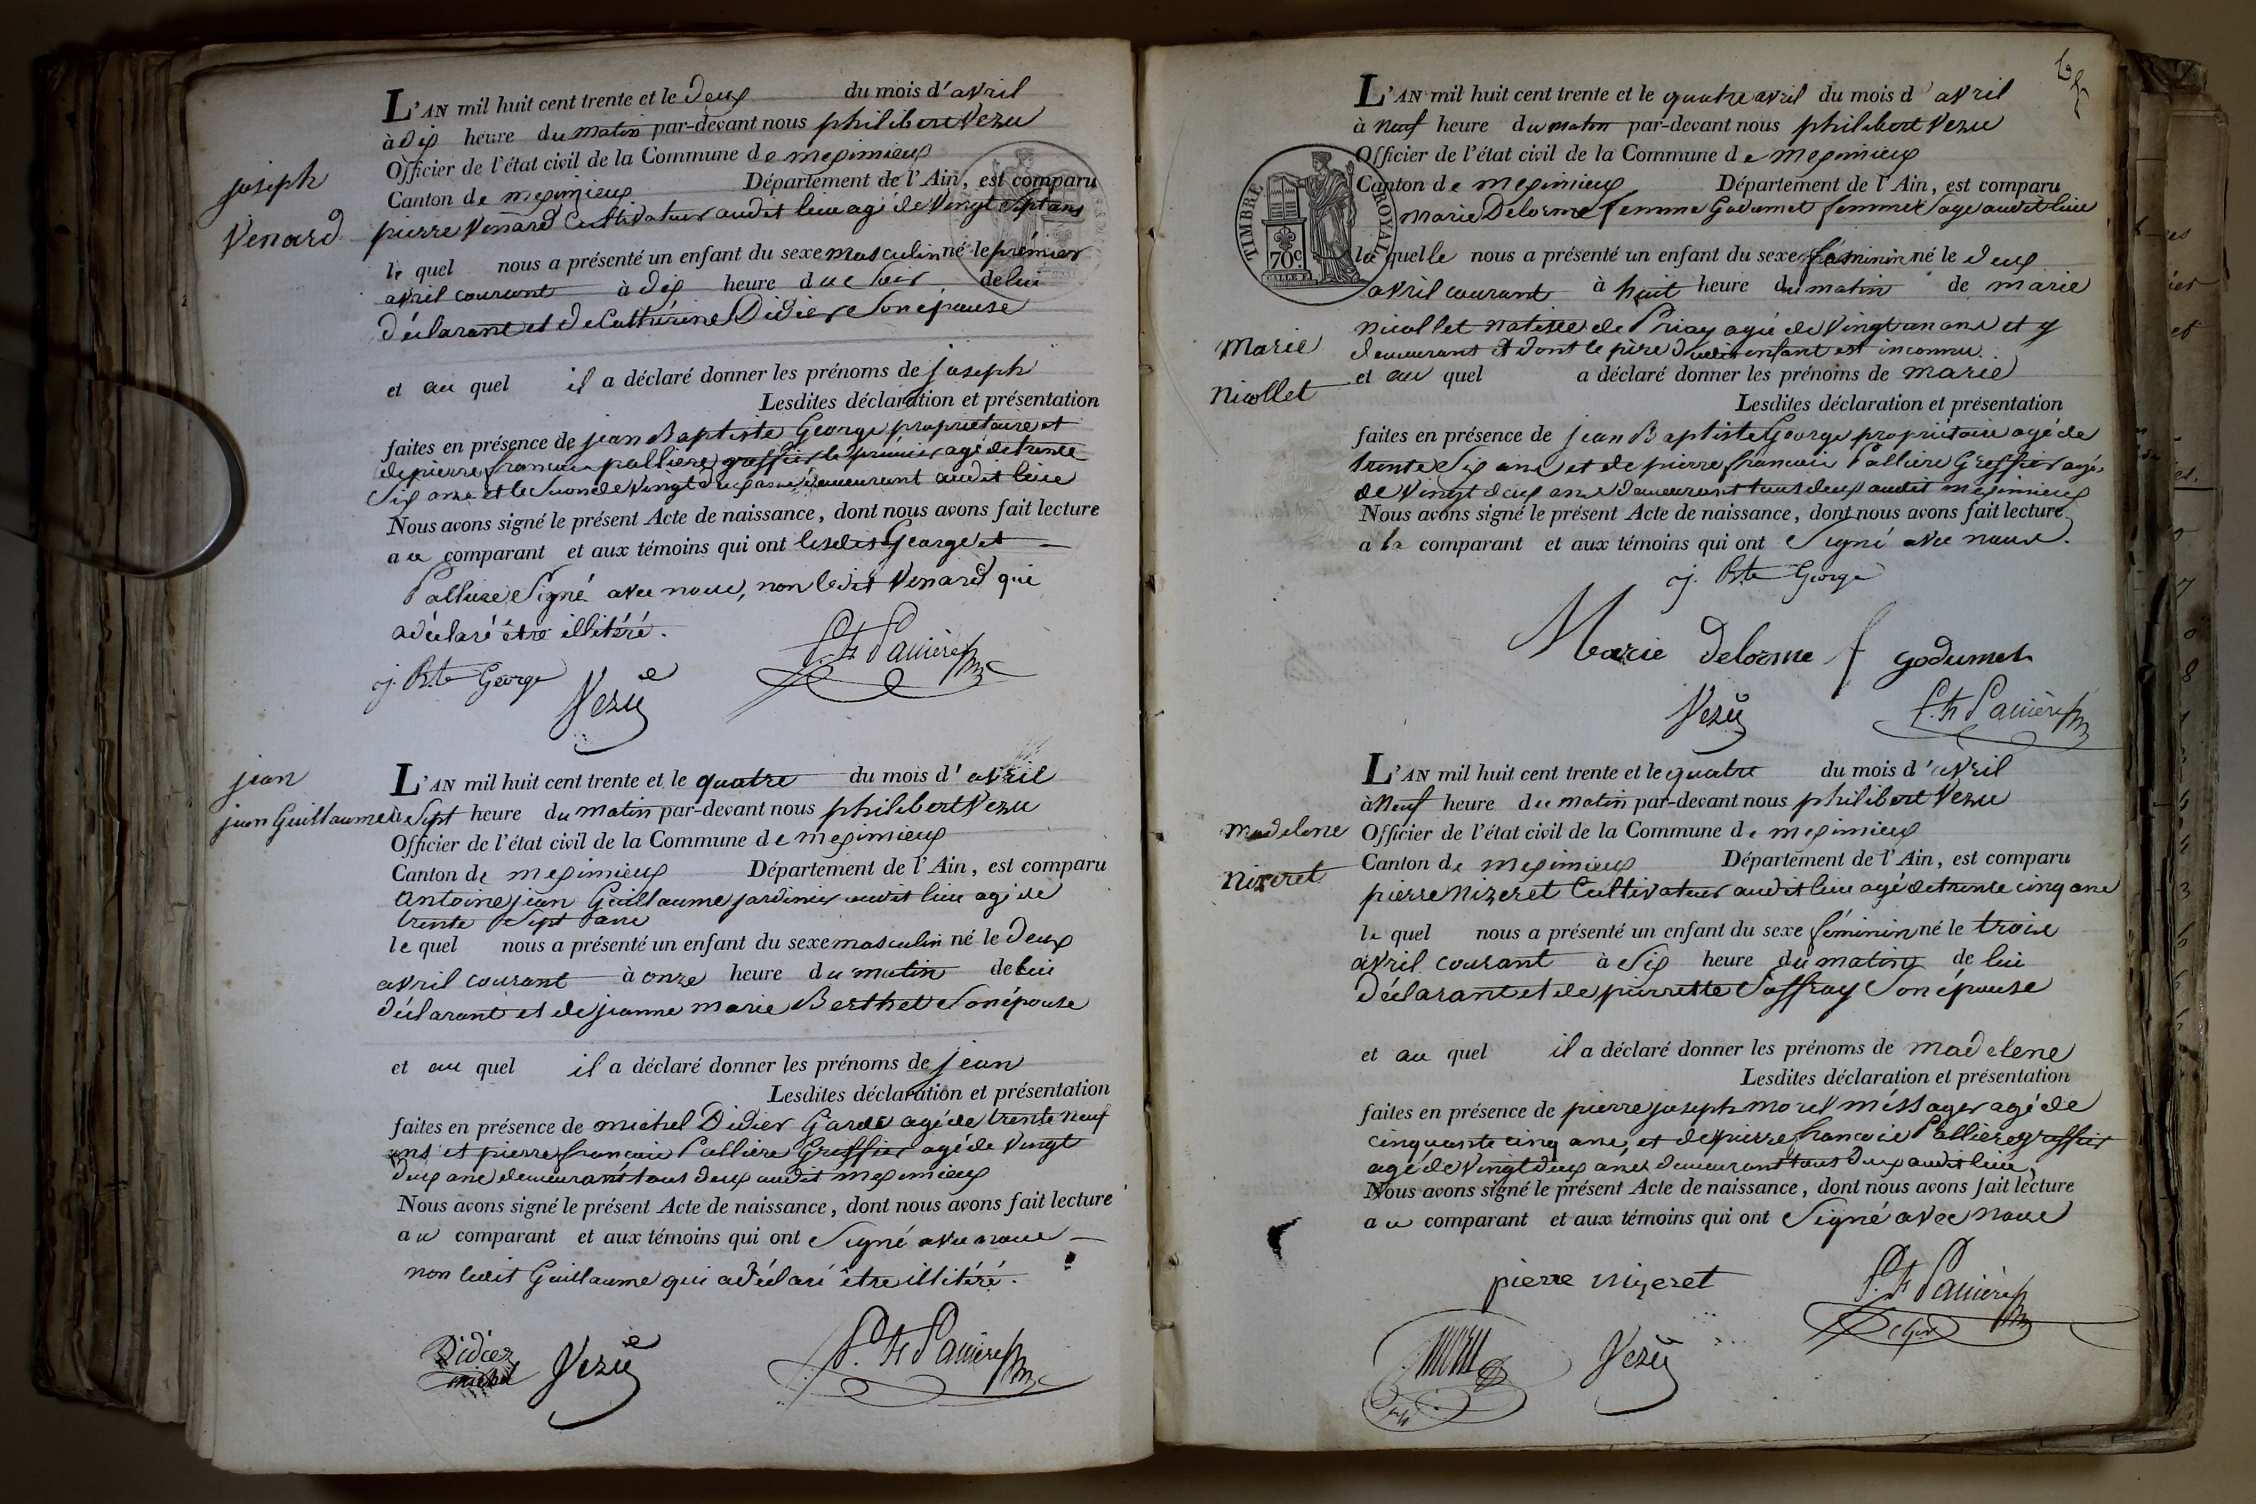 joseph
Venard
L'AN mil huit cent trente et le deux du mois d'avril
à dix heure du matin par-devant nous philibert Vezu
Officier de l'état civil de la Commune de meximieux
Canton de meximieux Département de l'Ain, est comparu
pierre Venard Cultivateur audit lieu agé de Vingt Sept ans
le quel nous a présenté un enfant du sexe masculin né le prémier
avril courant à dix heure du Soir de lui
déclarant et de Cathérine Didier Son épouse
et au quel il a déclaré donner les prénoms de joseph
Lesdites déclaration et présentation
faites en présence de jean Baptiste George propriétaire et
de pierre francois palliere greffier le prémier agé de trente
Six ans et le Second de Vingt deux ans demeurant audit lieu
Nous avons signé le présent Acte de naissance, dont nous avons fait lecture
au comparant et aux témoins qui ont lesdits George et
Palliere Signé avec nous, non ledit Venard qui
a déclaré être illitéré.
j. Bte George Vezu P. F. Pallière
jean
jean Guillaume
L'AN mil huit cent trente et le quatre du mois d'avril
à Sept heure du matin par-devant nous philibert Vezu
Officier de l'état civil de la Commune de meximieux
Canton de meximieux Département de l'Ain, est comparu
Antoine jean Guillaume jardinier audit lieu agé de
trente Sept ans
le quel nous a présenté un enfant du sexe masculin né le deux
avril courant à onze heure du matin de lui
déclarant et de jeanne marie Berthet Son épouse
et au quel il a déclaré donner les prénoms de jean
Lesdites déclaration et présentation
faites en présence de michel Didier Garde agé de trente neuf
ans et pierre francois Palliere Greffier agé de Vingt
deux ans demeurant tous deux audit meximieux
Nous avons signé le présent Acte de naissance, dont nous avons fait lecture
au comparant et aux témoins qui ont Signé avec nous
non ledit Guillaume qui a déclaré être illitéré.
Didier
michel Vezu P. F. Pallière
TIMBRE ROYAL
70c
Marie
Nicollet
L'AN mil huit cent trente et le quatre avril du mois d'avril
à Neuf heure du matin par-devant nous philibert Vezu
Officier de l'état civil de la Commune de meximieux
Canton de meximieux Département de l'Ain, est comparu
Marie Delorme femme Godumet femme Sage audit lieu
la quelle nous a présenté un enfant du sexe féminin né le deux
avril courant à huit heure du matin de marie
Nicollet native de Priay agée de Vingt un ans et y
demeurant et dont le père dudit enfant est inconnu.
et au quel a déclaré donner les prénoms de marie
Lesdites déclaration et présentation
faites en présence de jean Baptiste George propriétaire agé de
trente Six ans et de pierre francois Palliere Greffier agé
de Vingt deux ans demeurant tous deux audit meximieux
Nous avons signé le présent Acte de naissance, dont nous avons fait lecture
a la comparant et aux témoins qui ont Signé avec nous.
j. Bte George
Marie Delorme f godumet
Vezu P. F. Pallière
madelene
Nizeret
L'AN mil huit cent trente et le quatre du mois d'avril
à Neuf heure du matin par-devant nous philibert Vezu
Officier de l'état civil de la Commune de meximieux
Canton de meximieux Département de l'Ain, est comparu
pierre Nizeret Cultivateur audit lieu agé de trente cinq ans
le quel nous a présenté un enfant du sexe féminin né le trois
avril courant à Six heure du matin de lui
déclarant et de pierrette Soffray Son épouse
et au quel il a déclaré donner les prénoms de madelene
Lesdites déclaration et présentation
faites en présence de pierre joseph morel méssager agé de
cinquante cinq ans, et de pierre francois Palliere greffier
agé de Vingt deux ans demeurant tous deux audit lieu,
Nous avons signé le présent Acte de naissance, dont nous avons fait lecture
au comparant et aux témoins qui ont Signé avec nous
pierre nizeret P. F. Pallière
Vezu